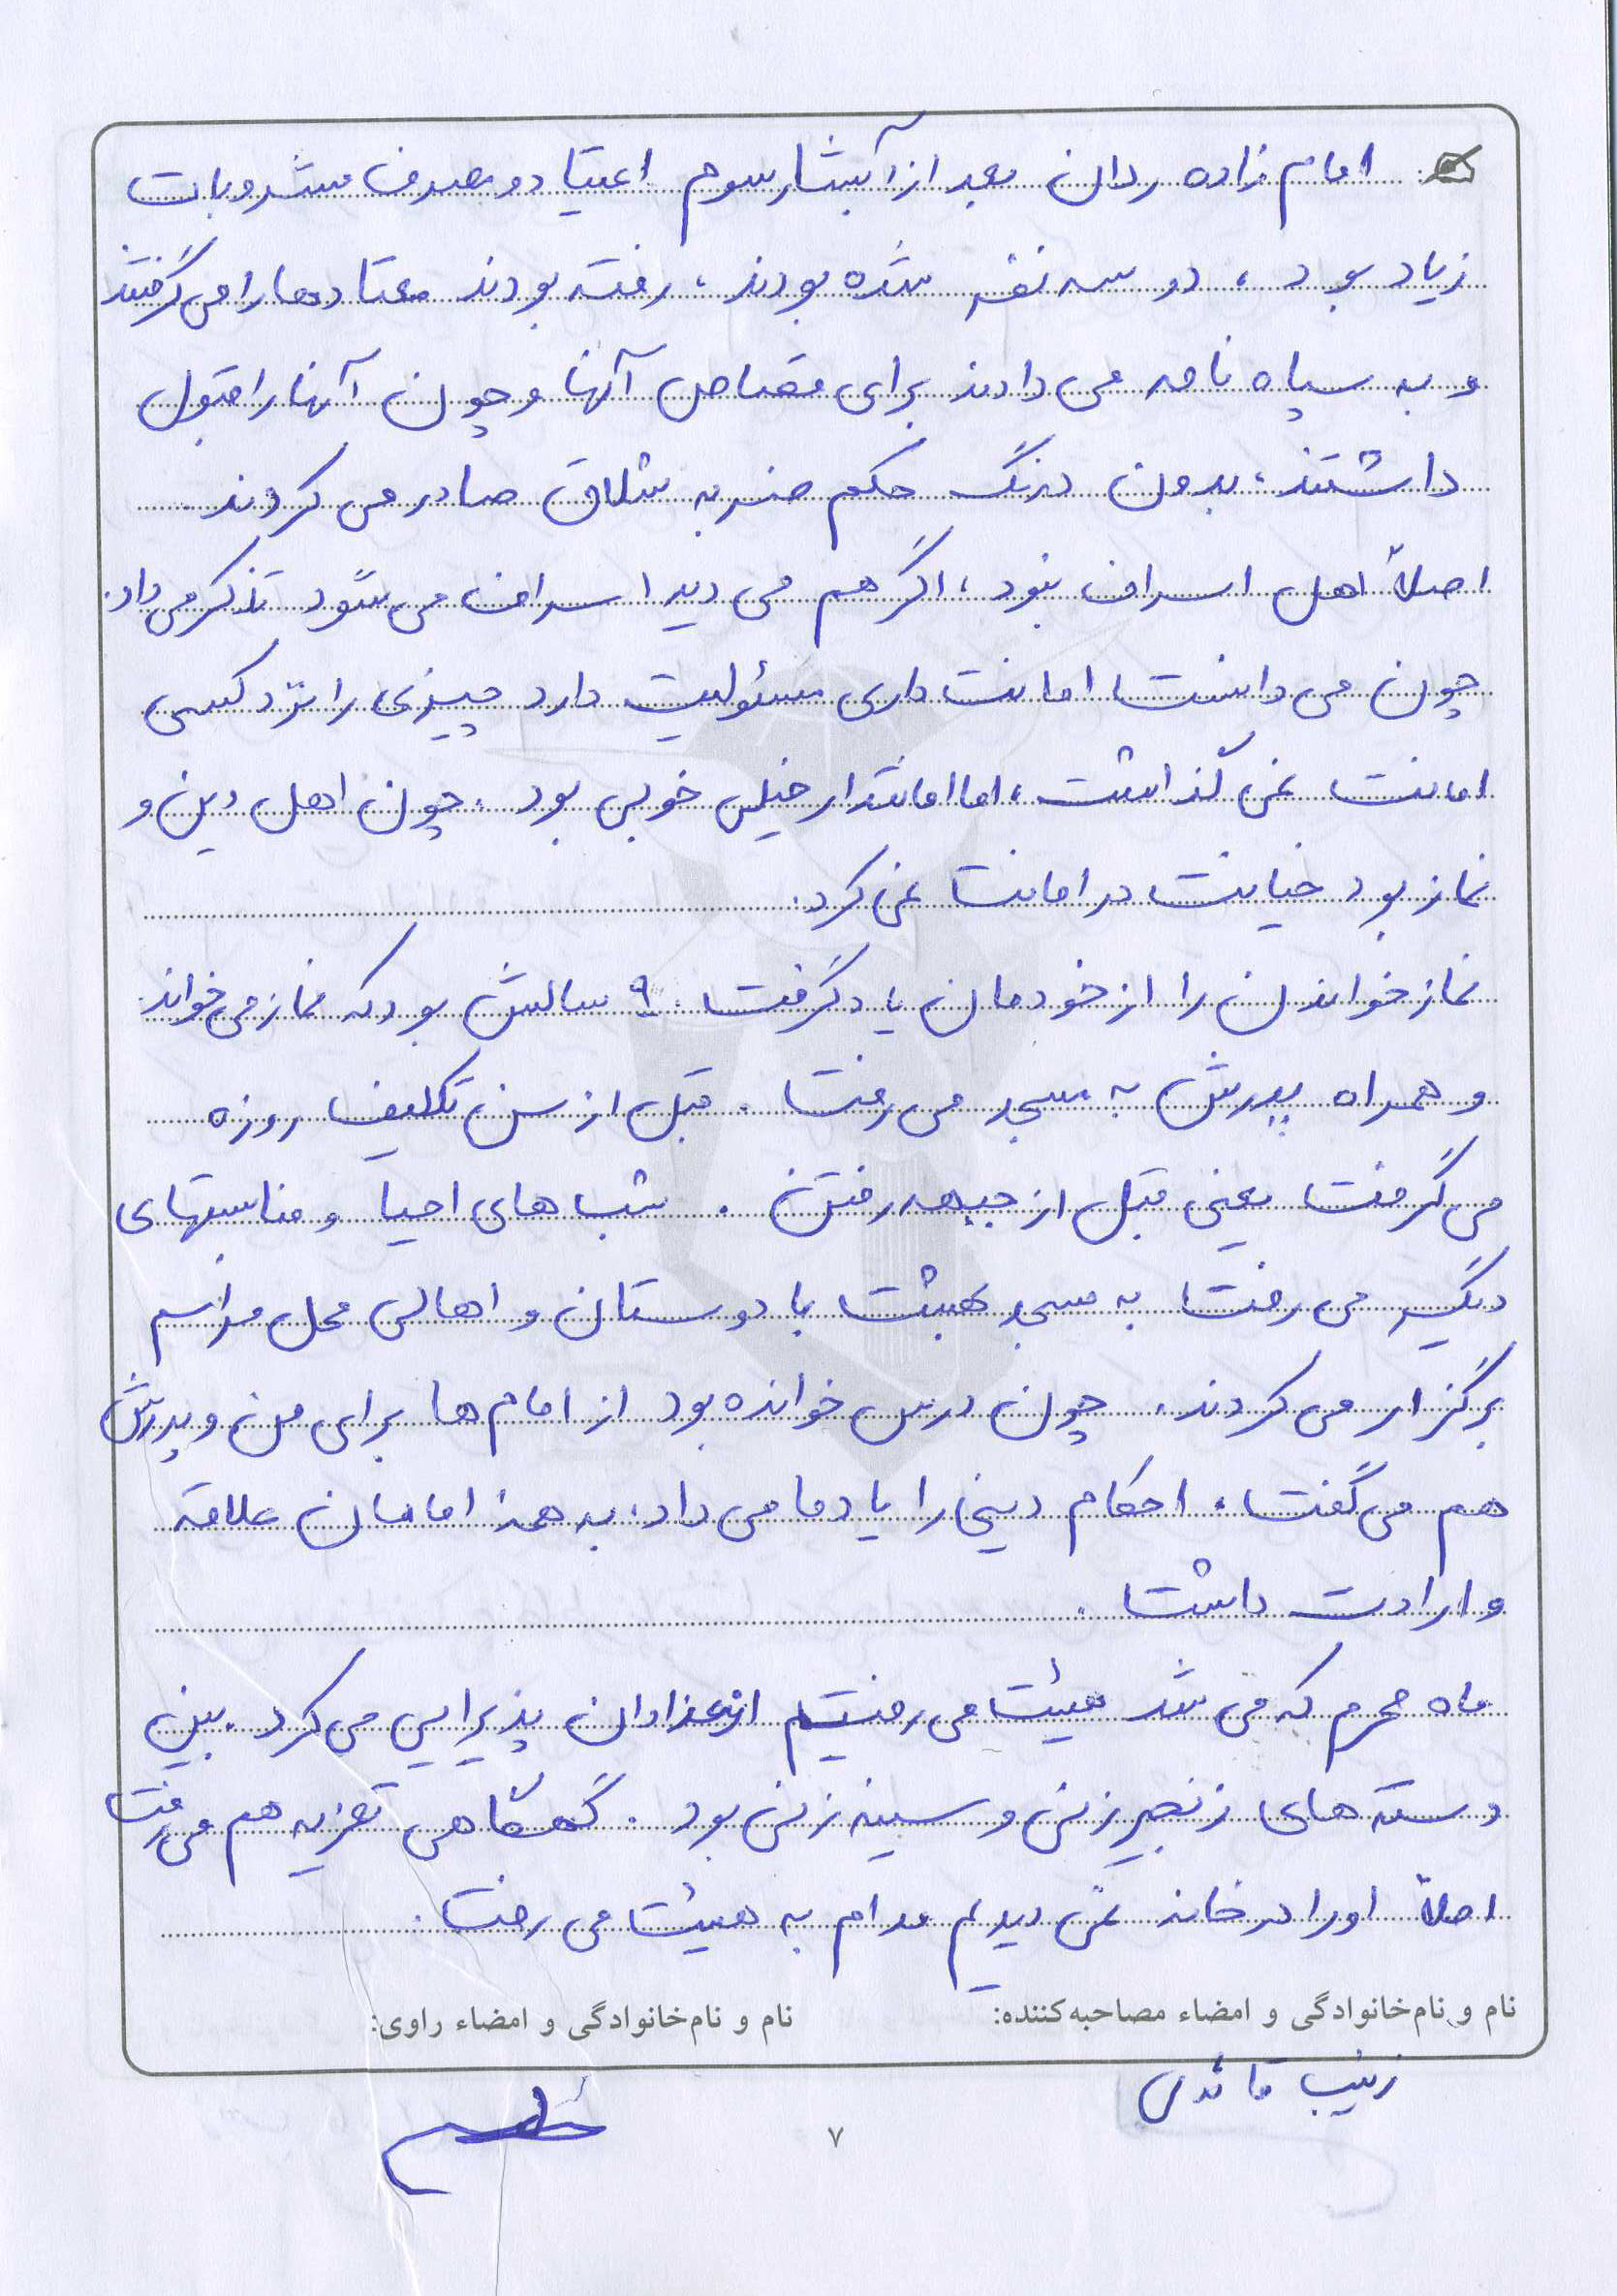 امام زاده ردان بعد از آبشار سوم اعتیاد و مصرف مشروبات
زیاد بود ، دو سه نفر شده بودند ، رفته بودند معتادها را می گرفتند
و به سپاه نامه می دادند برای قصاص آنها و چون آنها را قبول
داشتند ، بدون درنگ حکم ضربه شلاق صادر می کردند .
اصلاً اهل اسراف نبود ، اگر هم می دید اسراف می شود تذکر می داد .
چون می دانست امانت داری مسئولیت دارد چیزی را نزد کسی
امانت نمی گذاشت ، اما امانتدار خیلی خوبی بود . چون اهل دین و
نماز بود خیانت در امانت نمی کرد .
نماز خواندن را از خودمان یاد گرفت . ۹ سالش بود که نماز می خواند
و همراه پدرش به مسجد می رفت . قبل از سن تکلیف روزه
می گرفت یعنی قبل از جبهه رفتن . شب های احیا و مناسبتهای
دیگر می رفت به مسجد هیئت با دوستان و اهالی محل مراسم
برگزار می کردند . چون درس خوانده بود از امام ها برای من و پدرش
هم می گفت ، احکام دینی را یاد ما می داد . به همه امامان علاقه
و ارادت داشت .
ماه محرم که می شد هیئت می رفتیم از عزاداران پذیرایی می کرد . بین
دسته های زنجیر زنی و سینه زنی بود . گهگاهی تعزیه هم می رفت
اصلاً او را در خانه نمی دیدیم مدام به هیئت می رفت .
نام و نام‌خانوادگی و امضاء مصاحبه‌کننده: نام و نام‌خانوادگی و امضاء راوی:
زینب قائدی
۷